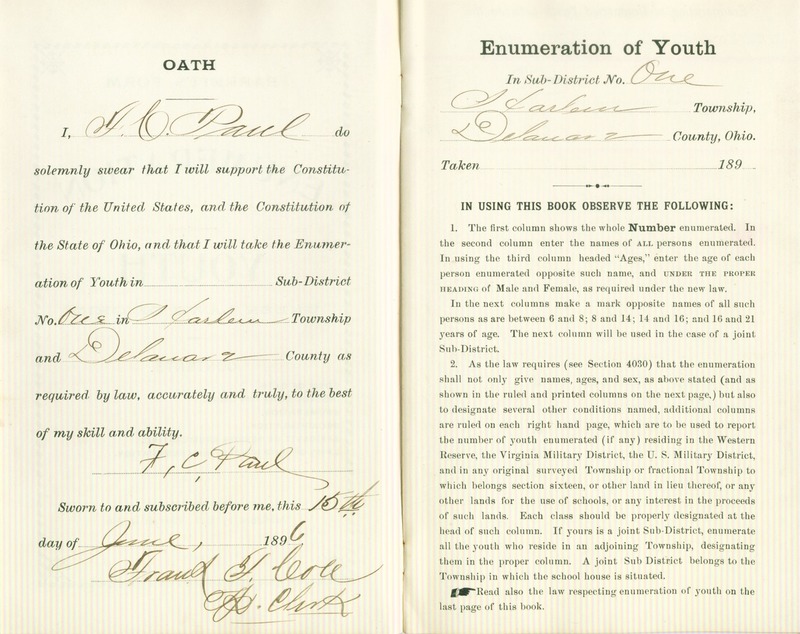 OATH
I, F. C. Paul do
solemnly swear that I will support the Constitu-
tion of the United States, and the Constitution of
the State of Ohio, and that I will take the Enumer-
ation of Youth in Sub-District
No. One in Harlem Township
and Delaware County as
required by law, accurately and truly, to the best
of my skill and ability.
F, C, Paul
Sworn to and subscribed before me, this 15th
day of June, 1896
Frank Cole
Clerk
Enumeration of Youth
In Sub-District No. One
Harlem Township,
Delaware County, Ohio.
Taken 189
IN USING THIS BOOK OBSERVE THE FOLLOWING:
1. The first column shows the whole Number enumerated. In
the second column enter the names of ALL persons enumerated.
In using the third column headed "Ages," enter the age of each
person enumerated opposite such name, and UNDER THE PROPER
HEADING of Male and Female, as required under the new law.
In the next columns make a mark opposite names of all such
persons as are between 6 and 8; 8 and 14; 14 and 16; and 16 and 21
years of age. The next column will be used in the case of a joint
Sub-District.
2. As the law requires (see Section 4030) that the enumeration
shall not only give names, ages, and sex, as above stated (and as
shown in the ruled and printed columns on the next page,) but also
to designate several other conditions named, additional columns
are ruled on each right hand page, which are to be used to report
the number of youth enumerated (if any) residing in the Western
Reserve, the Virginia Military District, the U. S. Military District,
and in any original surveyed Township or fractional Township to
which belongs section sixteen, or other land in lieu thereof, or any
other lands for the use of schools, or any interest in the proceeds
of such lands. Each class should be properly designated at the
head of such column. If yours is a joint Sub-District, enumerate
all the youth who reside in an adjoining Township, designating
them in the proper column. A joint Sub District belongs to the
Township in which the school house is situated.
Read also the law respecting enumeration of youth on the
last page of this book.